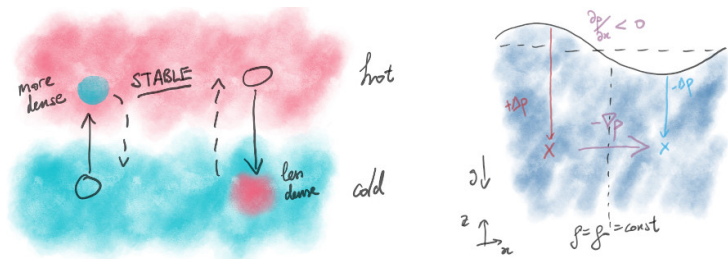 more
dense
STABLE
hot
less
dense
cold
∂p/∂x < 0
+Δp
-Δp
-∇p
g
z
x
ρ = ρ₀ = const